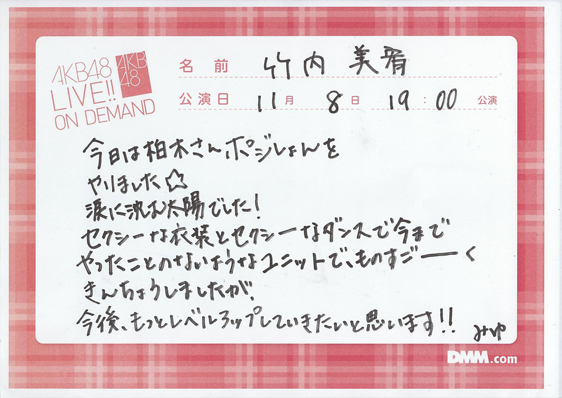 AKB48
LIVE!!
ON DEMAND
AKB
48
名前 竹内 美宥
公演日 11月 8日 19:00 公演
今日は柏木さんポジしょんを
やりました☆
涙に沈む太陽でした!
セクシーな衣装とセクシーなダンスで今まで
やったことのないようなユニットで、ものすごーーく
きんちょうしましたが、
今後、もっとレベルアップしていきたいと思います!!
みゆ
DMM.com